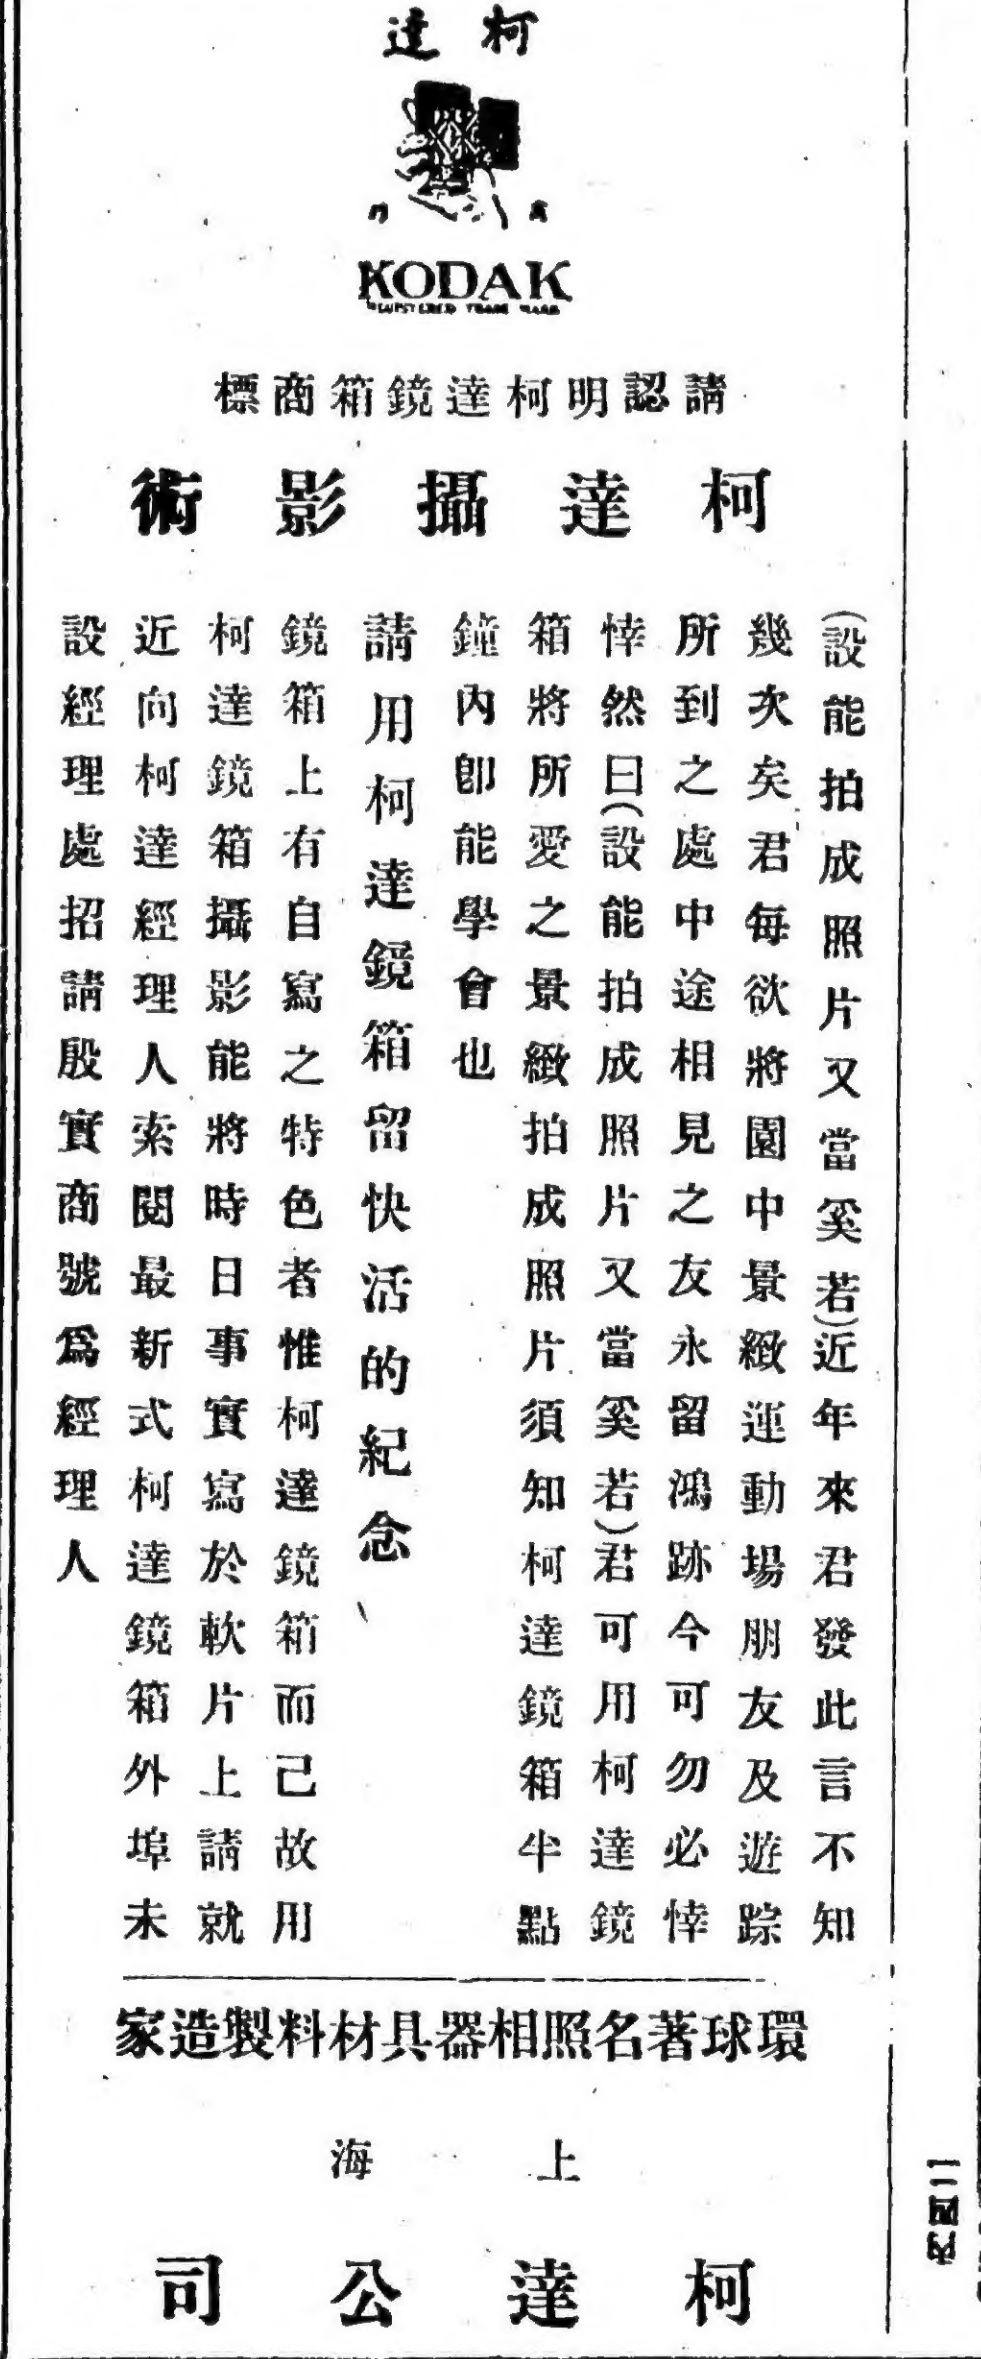 柯達
KODAK
REGISTERED TRADE MARK
請認明柯達鏡箱商標
柯達攝影術
(設能拍成照片又當奚若)近年來君發此言不知
幾次矣君每欲將園中景緻運動場朋友及遊踪
所到之處中途相見之友永留鴻跡今可勿必悻
悻然曰(設能拍成照片又當奚若)君可用柯達鏡
箱將所愛之景緻拍成照片須知柯達鏡箱半點
鐘內卽能學會也
請用柯達鏡箱留快活的紀念
鏡箱上有自寫之特色者惟柯達鏡箱而已故用
柯達鏡箱攝影能將時日事實寫於軟片上請就
近向柯達經理人索閱最新式柯達鏡箱外埠未
設經理處招請殷實商號爲經理人
環球著名照相器具材料製造家
上海
柯達公司
內四二